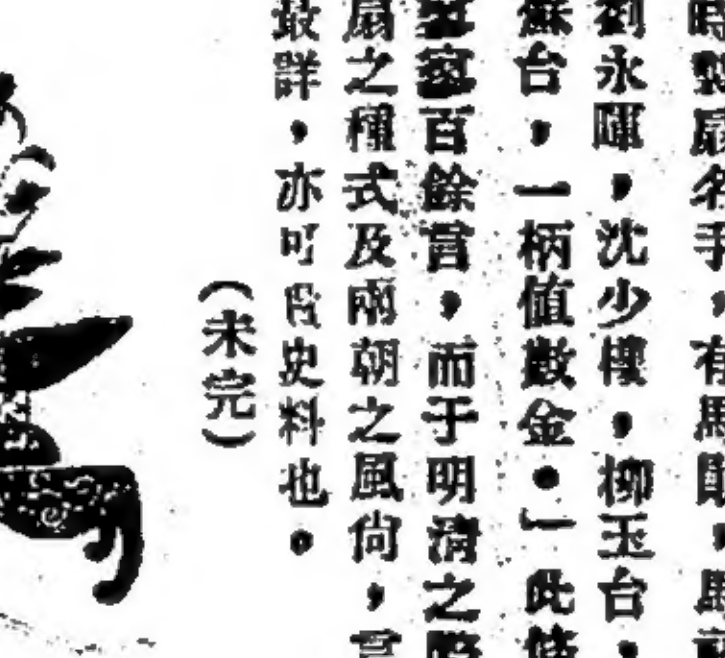 時製扇名手，有馬勛，馬
劉永暉，沈少樓，柳玉台，
蘇台，一柄值數金。」此
寥寥百餘言，而于明清之際
扇之種式及兩朝之風尚，言
最詳，亦可為史料也。
（未完）